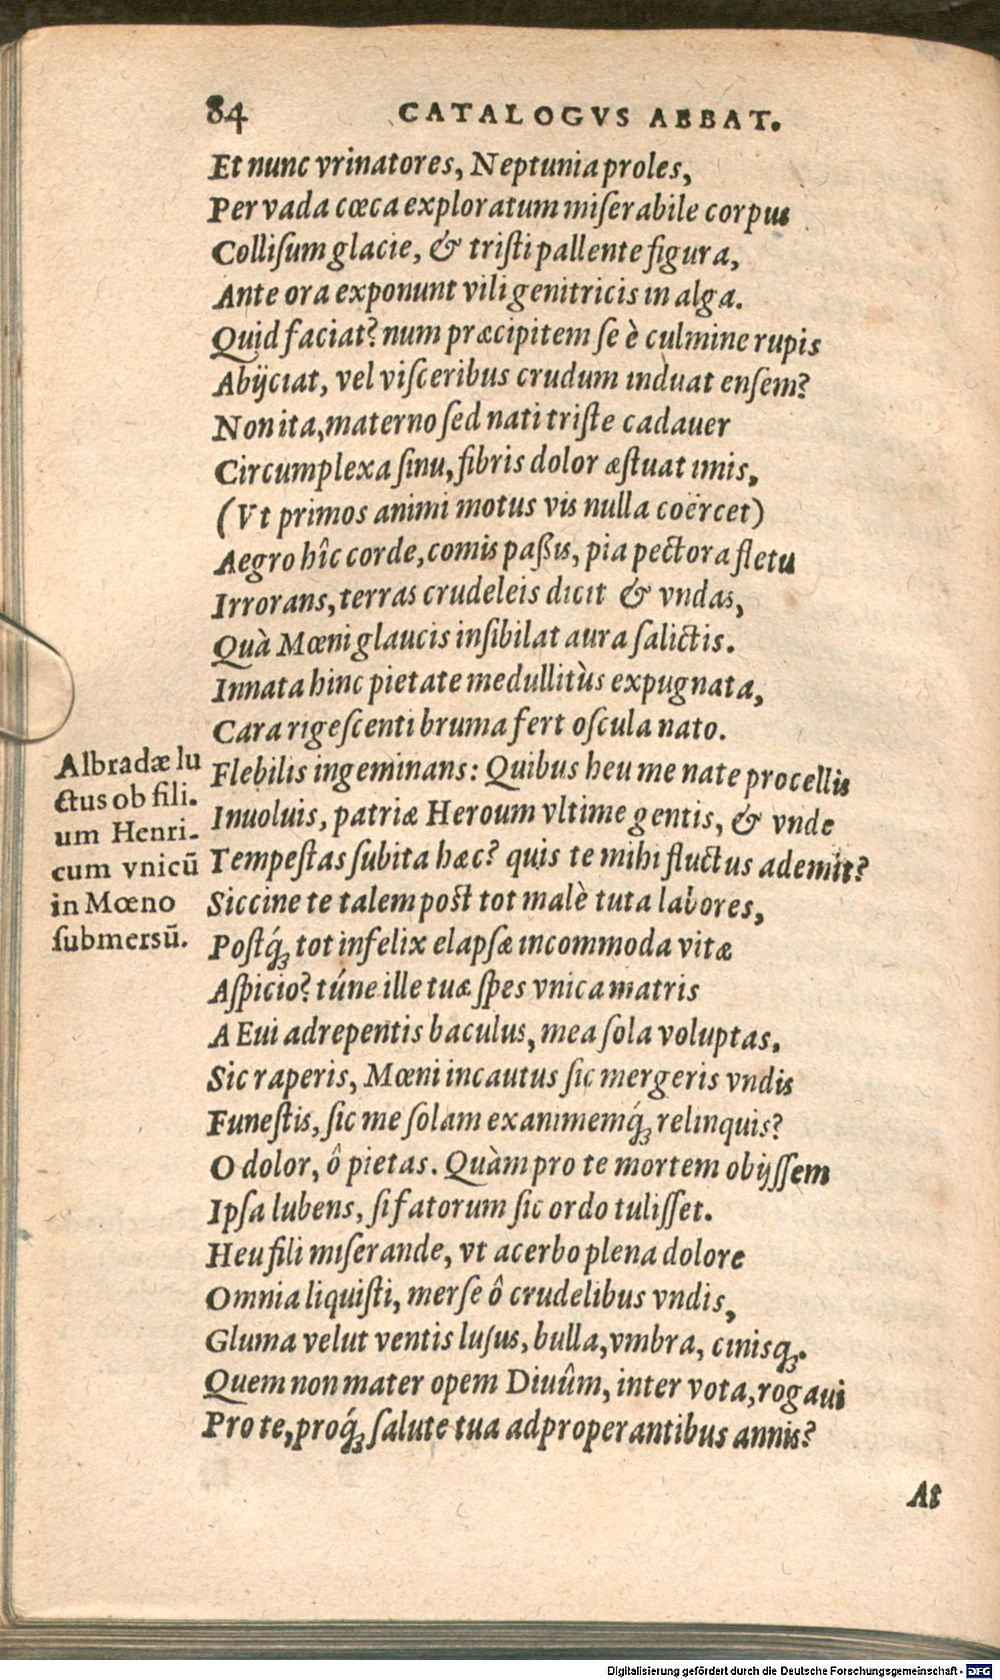 84 CATALOGVS ABBAT.
Et nunc vrinatores, Neptunia proles,
Per vada cœca exploratum miſerabile corpus
Colliſum glacie, & triſti pallente figura,
Ante ora exponunt vili genitricis in alga.
Quid faciat? num præcipitem ſe è culmine rupis
Abijciat, vel viſceribus crudum induat enſem?
Non ita, materno ſed nati triſte cadauer
Circumplexa ſinu, fibris dolor æſtuat imis,
(Vt primos animi motus vis nulla coërcet)
Aegro hîc corde, comis paßis, pia pectora fletu
Irrorans, terras crudeleis dicit & vndas,
Quà Mœni glaucis inſibilat aura ſalictis.
Innata hinc pietate medullitùs expugnata,
Cara rigeſcenti bruma fert oſcula nato.
Flebilis ingeminans: Quibus heu me nate procellis
Inuoluis, patriæ Heroum vltime gentis, & vnde
Tempeſtas ſubita hæc? quis te mihi fluctus ademit?
Siccine te talem post tot malè tuta labores,
Poſtq́; tot infelix elapſæ incommoda vitæ
Aſpicio? túne ille tuæ ſpes vnica matris
AEui adrepentis baculus, mea ſola voluptas,
Sic raperis, Mœni incautus ſic mergeris vndis
Funeſtis, ſic me ſolam exanimemq́; relinquis?
O dolor, ô pietas. Quàm pro te mortem obijſſem
Ipſa lubens, ſi fatorum ſic ordo tuliſſet.
Heu fili miſerande, vt acerbo plena dolore
Omnia liquiſti, merſe ô crudelibus vndis,
Gluma velut ventis luſus, bulla, vmbra, cinisq;.
Quem non mater opem Diuûm, inter vota, rogaui
Pro te, proq́; ſalute tua adproperantibus annis?
At
Albradæ lu
ctus ob fili-
um Henri-
cum vnicū
in Mœno
ſubmersū.
Digitalisierung gefördert durch die Deutsche Forschungsgemeinschaft - DFG